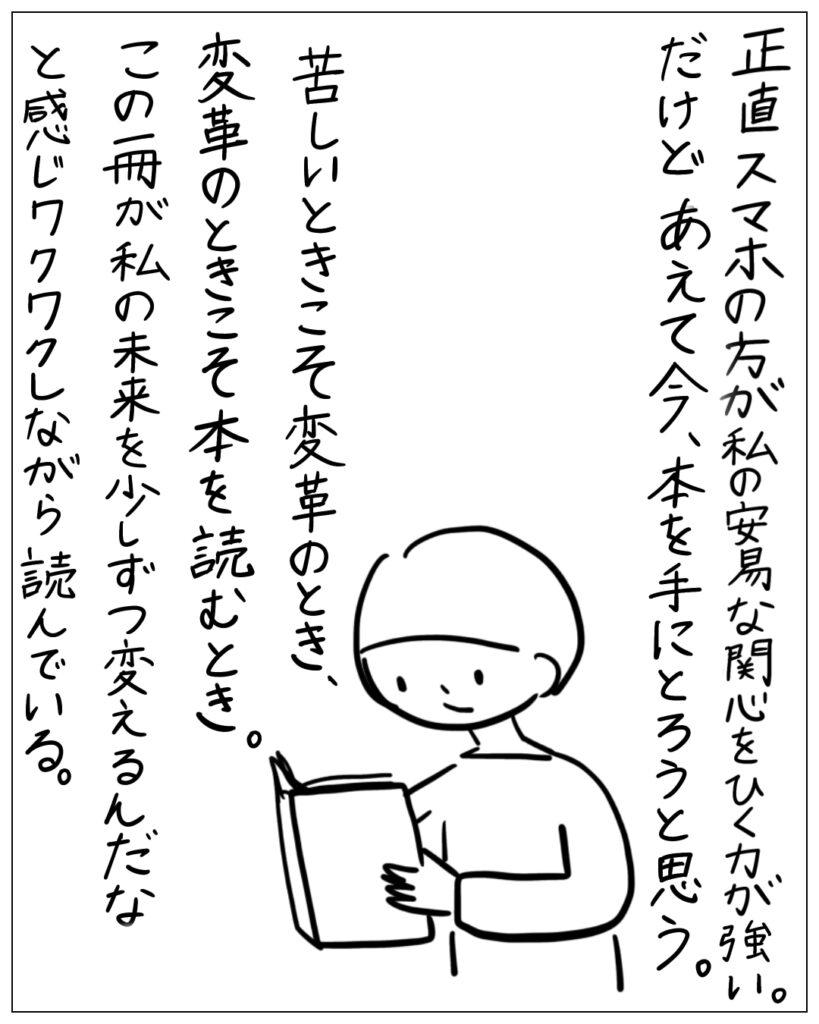 正直スマホの方が私の安易な関心をひく力が強い。
だけど あえて今、本を手にとろうと思う。
苦しいときこそ変革のとき、
変革のときこそ本を読むとき。
この一冊が私の未来を少しずつ変えるんだな
と感じワクワクしながら読んでいる。